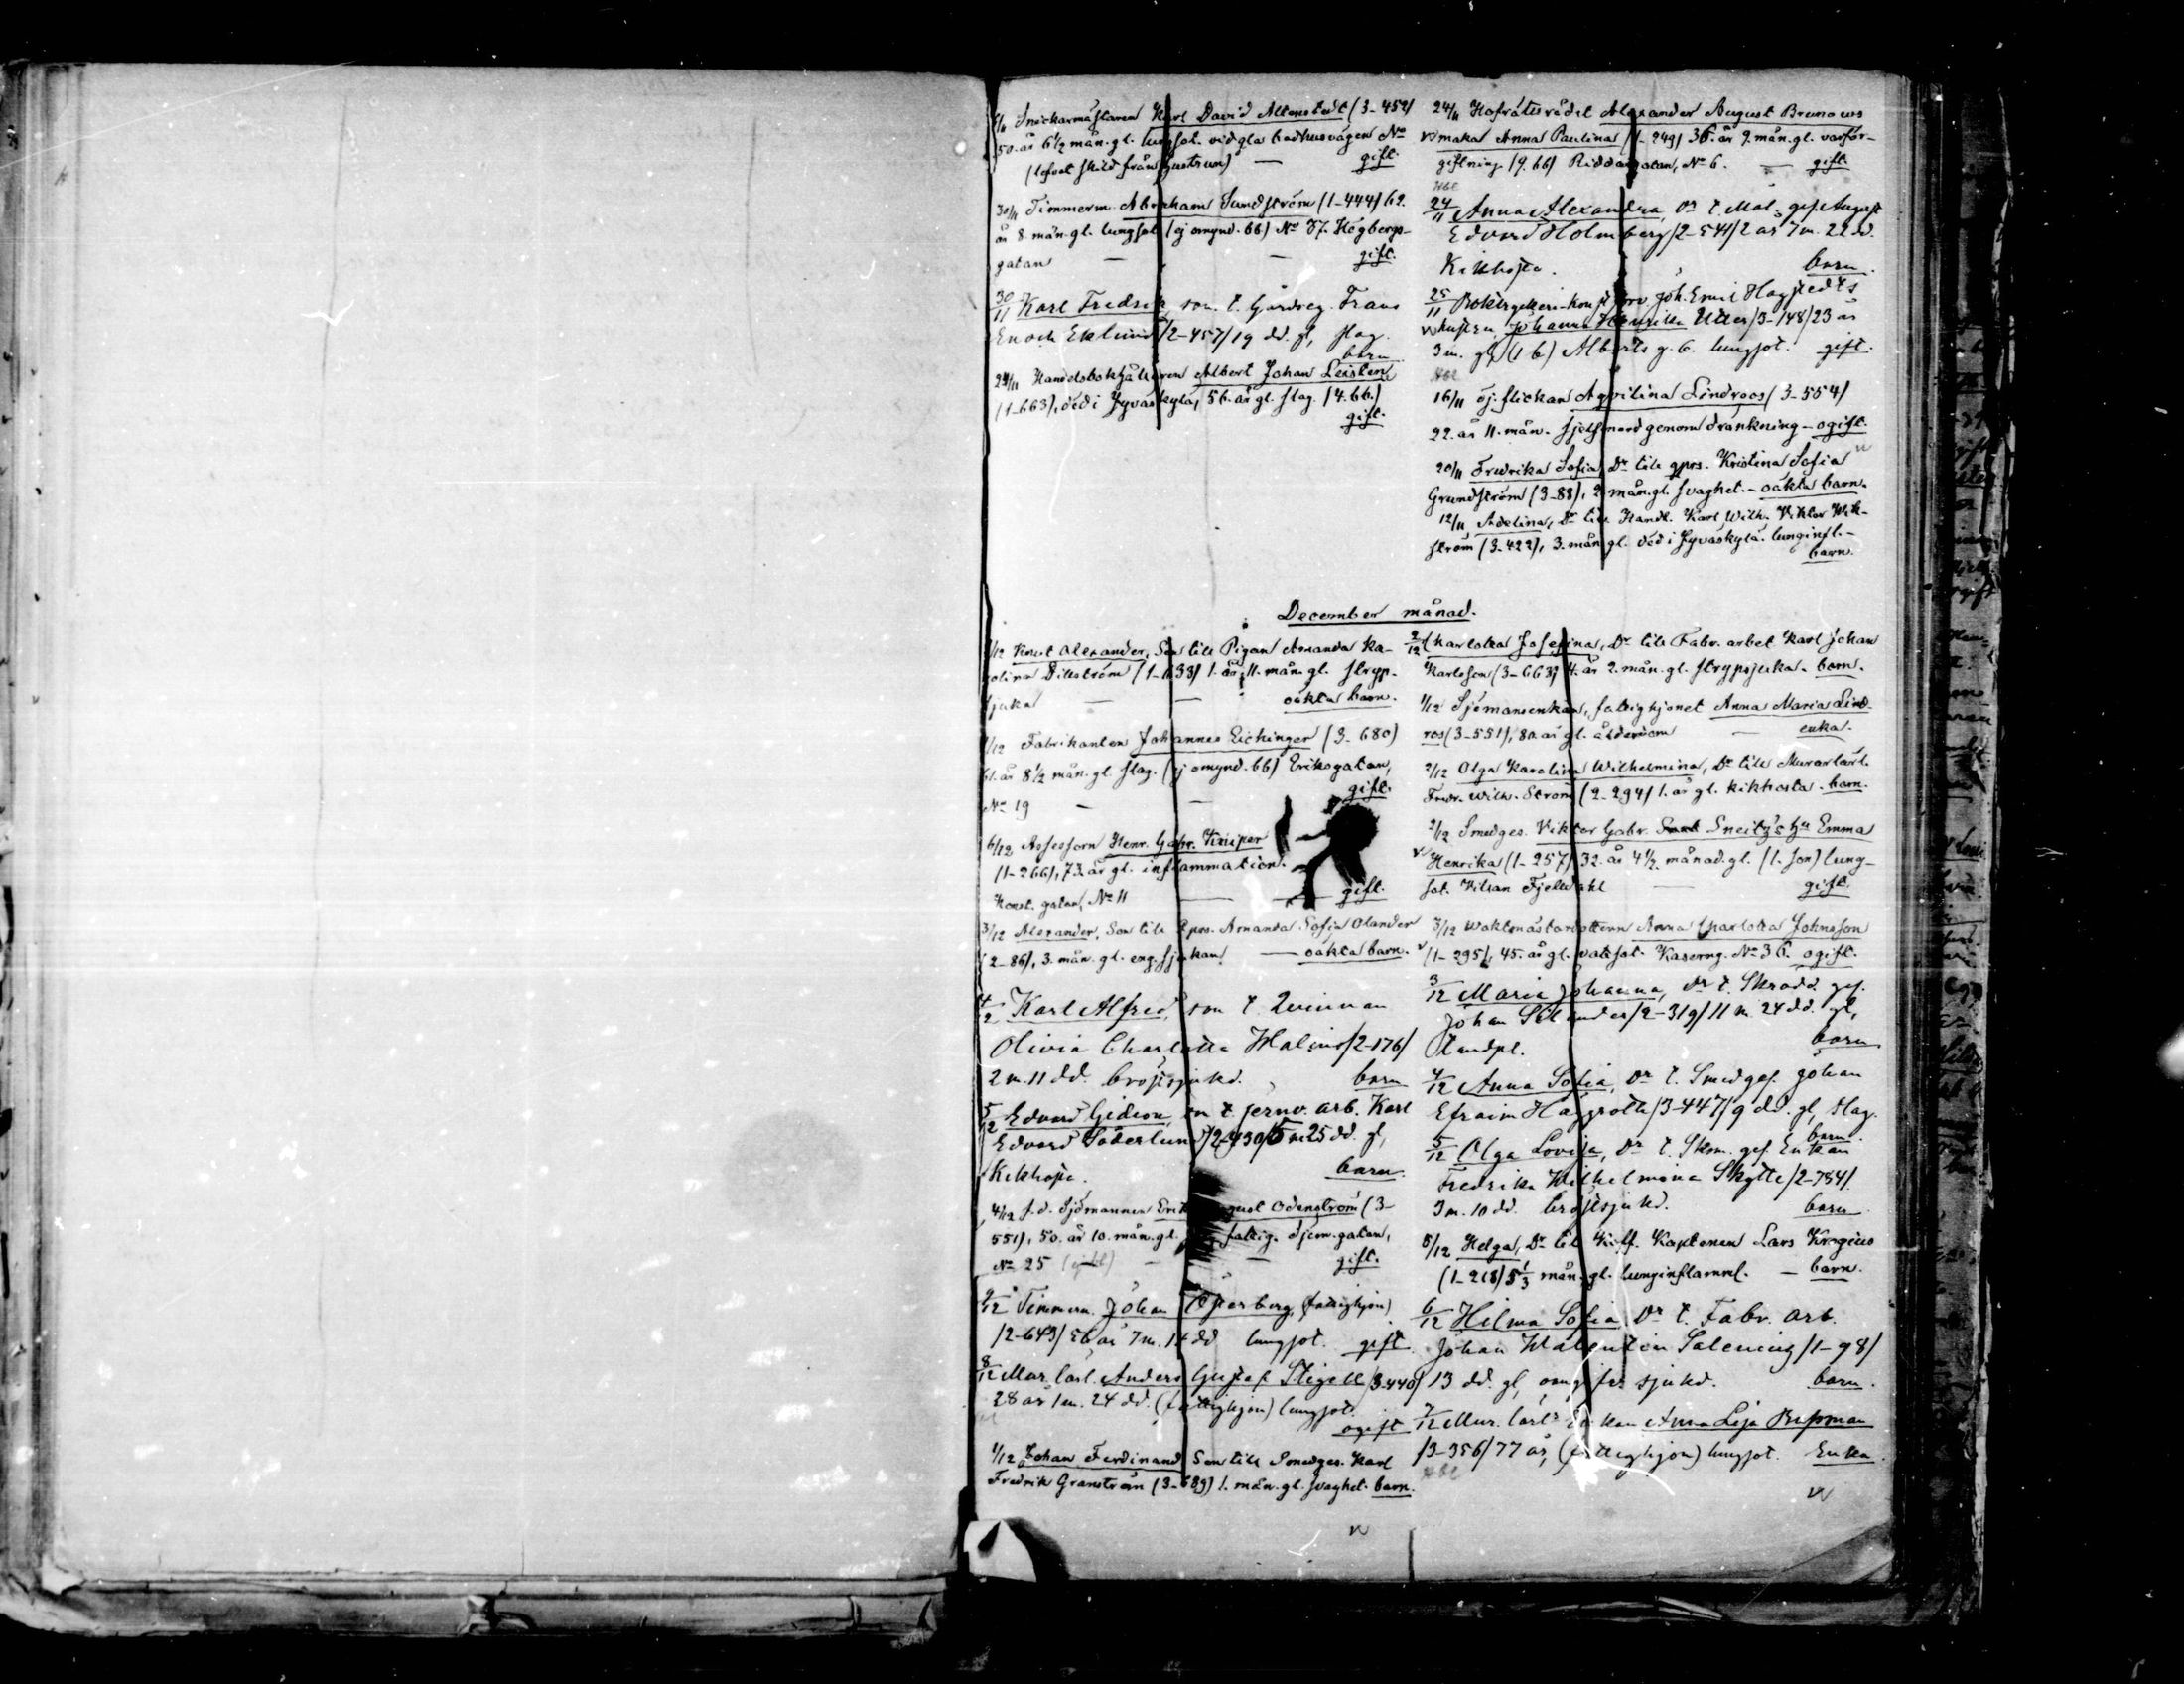 Snickarmästaren Karl David Altenstedt (3-452)
50. år 6½ mån. gl. lungsot. vid gla badhusvägen No
(lefvat skild från hustrun) — gift.
30/11 Timmerm. Abraham Sundström (1-444) 62.
år 8 mån. gl. lungsot (ej omynd. 66) No 37. Högbergs-
gatan — — gift.
30/11 Karl Fredrik, son t. Gårdseg. Frans
Enoch Eklund /2-457/ 19 dd. gl, slag.
barn
24/11 Handelsbokhållaren Albert Johan Leisten
(1-663), död i Jyväskylä, 56. år gl. slag. (4. 66.)
gift.
24/11 Hofrättsrådet Alexander August Brunous
maka Anna Paulina (1-249) 36. år 9. mån. gl. varför-
giftning (9. 66) Riddaregatan, No 6. — gift.
24/11 Anna Alexandra, Dr t. Mål. ges. August
Edvard Holmberg /2-541/ 2 år 7 m. 22 d.
Kikhosta. barn.
25/11 Boktryckeri-konstförv. Joh. Emil Hagstedts
hustru Johanna Henrika Utter /3-148/ 23 år
3 m. gl, (1 b) Alberts g. 6. lungsot. gift.
16/11 Sj. flickan Aqvilina Lindroos (3-554)
22. år 11. mån. sjelfmord genom dränkning - ogift.
20/11 Fredrika Sofia, Dr till qprs. Kristina Sofia
Grundström (3-88), 2 mån. gl. svaghet. - oäkta barn.
12/11 Adelina, Dr till Handl. Karl Wilh. Viktor Wik-
ström (3-422), 3. mån. gl. död i Jyväskylä. lunginfl. -
barn.
December månad.
/12 Knut Alexander, Son till Pigan Amanda Ka-
rolina Dillström (1-1133) 1. år, 11. mån. gl. stryp-
sjuka — — oäkta barn.
/12 Fabrikanten Johannes Eichinger (3-680)
61. år 8½ mån. gl. slag. (ej omynd. 66) Eriksgatan,
No 19 — — gift.
6/12 Assessorn Henr. Gabr. Krüper
(1-266), 73. år gl. inflammation.
Konst. gatan, No 11 — gift.
3/12 Alexander, Son till Qprs. Amanda Sofia Olander
(2-86), 3. mån. gl. eng. sjukan — oäkta barn.
Karl Alfred, son t. Qvinnan
Olivia Charlotta Malmio /2-176/
2 m. 11 dd. bröstsjukd. barn
Edvard Gideon, son t. jernv. arb. Karl
Edvard Söderlund /2-430/ 5 m 25 dd. gl,
Kikhosta. barn.
4/12 f. d. Sjömannen Erik
August Odenström (3-
551), 50. år 10. mån. gl. fattig. Djern. gatan,
No 25 — gift.
9/12 Timmerm. Johan Österberg, (fattighjon)
/2-643/ 56 år 7 m. 14 dd lungsot. gift
8/12 Mur. lärl. Anders Gustaf Stigell /3-440/
28 år 1 m. 24 dd. (fattighjon) lungsot.
ogift
1/12 Johan Ferdinand Son till Smedges. Karl
Fredrik Granström (3-689) 1. mån. gl. svaghet. barn.
2/12 Charlotta Josefina, Dr till Fabr. arbet. Karl Johan
Karlsson (3-663) 4. år 2. mån. gl. strypsjuka. barn.
1/12 Sjömansenkan, fattighjonet Anna Maria Lind-
ros (3-551), 80. år gl. ålderdom — enka.
2/12 Olga Karolina Wilhelmina, Dr till Murarlärl.
Fredr. Wilh. Ström (2-294) 1. år gl. kikhosta. barn.
2/12 Smedges. Viktor Gabr. Sneitz's hu Emma
Henrika (1-257) 32. år 4½ månad. gl. (1. son) lung-
sot. Villan Fjelldahl — gift.
3/12 Waktmästardottern Anna Charlotta Johnsson
(1-295), 45. år gl. vattsot. Kaserng. No 36. ogift.
3/12 Maria Johanna, Dr t. Skrädd. ges.
Johan Selander /2-319/ 11 m. 24 dd. gl,
tandpl. barn
4/12 Anna Sofia, Dr t. Smedges. Johan
Efraim Haggroth /3-447/ 9 dd. gl, slag.
barn.
5/12 Olga Lovisa, Dr t. Skom. ges. Enkan
Fredrika Wilhelmina Skytte /2-784/
3 m. 10 dd. bröstsjukd. barn
5/12 Helga, Dr till Koff. Kaptenen Lars Krogius
(1-218) 5⅓ mån. gl. lunginflamml. — barn.
6/12 Hilma Sofia Dr t. Fabr. arb.
Johan Walentin Salenius /1-98/
13 dd. gl, sjukd. barn.
7/12 Mur. lärls Enkan Anna Lisa
/3-356/ 77 år, (fattighjon) lungsot. Enka.